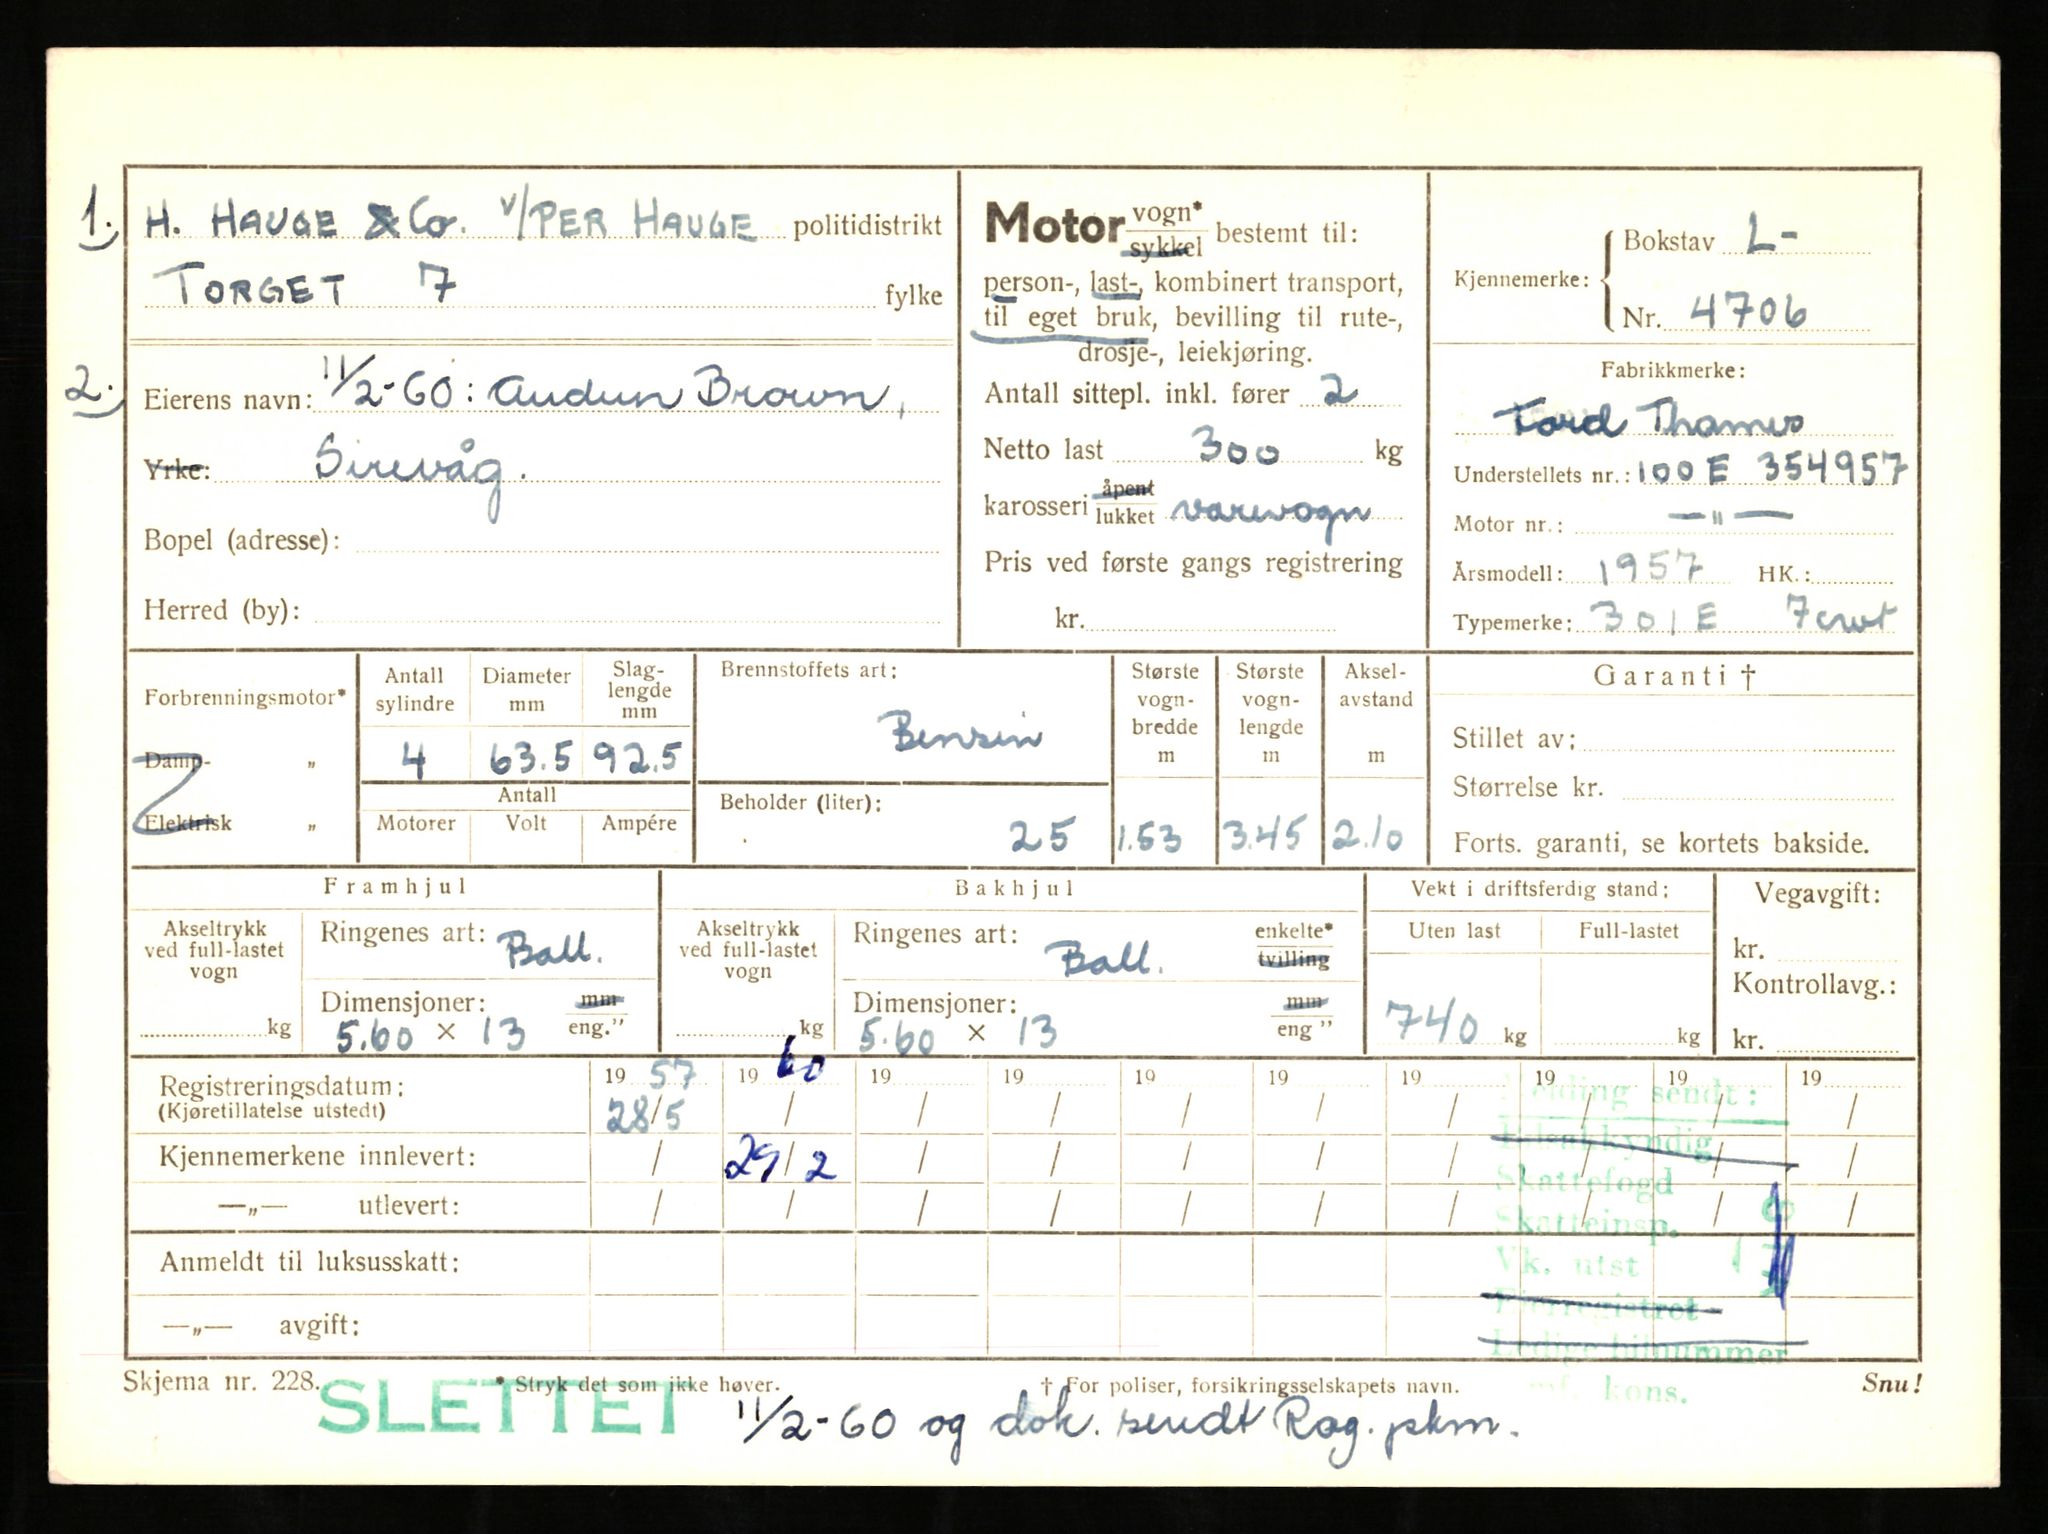 1. H. HAUGE & Co. v/PER HAUGE politidistrikt
TORGET 7 fylke
2. Eierens navn: 11/2-60: Audun Brown,
Yrke: Sirevåg.
Bopel (adresse):
Herred (by):
Motor vogn* sykkel bestemt til:
person-, last-, kombinert transport,
til eget bruk, bevilling til rute-,
drosje-, leiekjøring.
Antall sittepl. inkl. fører 2
Netto last 300 kg
karosseri åpent lukket varevogn
Pris ved første gangs registrering
kr.
Kjennemerke: Bokstav L-
Nr. 4706
Fabrikkmerke:
Ford Thames
Understellets nr.: 100 E 354957
Motor nr.: —"—
Årsmodell: 1957 HK.:
Typemerke: 301 E 7 cwt
Forbrenningsmotor*
Damp- „
Elektrisk „
Antall sylindre
Diameter mm
Slag-lengde mm
4 63.5 92.5
Antall
Motorer Volt Ampére
Brennstoffets art:
Bensin
Beholder (liter):
25
Største vogn-bredde m
1.53
Største vogn-lengde m
3.45
Aksel-avstand m
2.10
Garanti †
Stillet av:
Størrelse kr.
Forts. garanti, se kortets bakside.
Framhjul
Akseltrykk ved full-lastet vogn
kg
Ringenes art: Ball.
Dimensjoner: mm eng."
5.60 × 13
Bakhjul
Akseltrykk ved full-lastet vogn
kg
Ringenes art: Ball. enkelte* tvilling
Dimensjoner: mm eng "
5.60 × 13
Vekt i driftsferdig stand:
Uten last Full-lastet
740 kg kg
Vegavgift:
kr.
Kontrollavg.:
kr.
Registreringsdatum: 19 57 19 60 19 19 19 19 19 19 19 19
(Kjøretillatelse utstedt) 28/5 / / / / / / / / /
Kjennemerkene innlevert: / 29/2 / / / / / / / /
—„— utlevert: / / / / / / / / / /
Anmeldt til luksusskatt:
—„— avgift:
Melding sendt:
Bilsakkyndig
Skattefogd
Skatteinsp.
Vk. utst
Fjerregistret
Ledige bilnummer
kons.
Skjema nr. 228. * Stryk det som ikke høver. † For poliser, forsikringsselskapets navn. Snu!
SLETTET 11/2-60 og dok. sendt Rog. pkm.